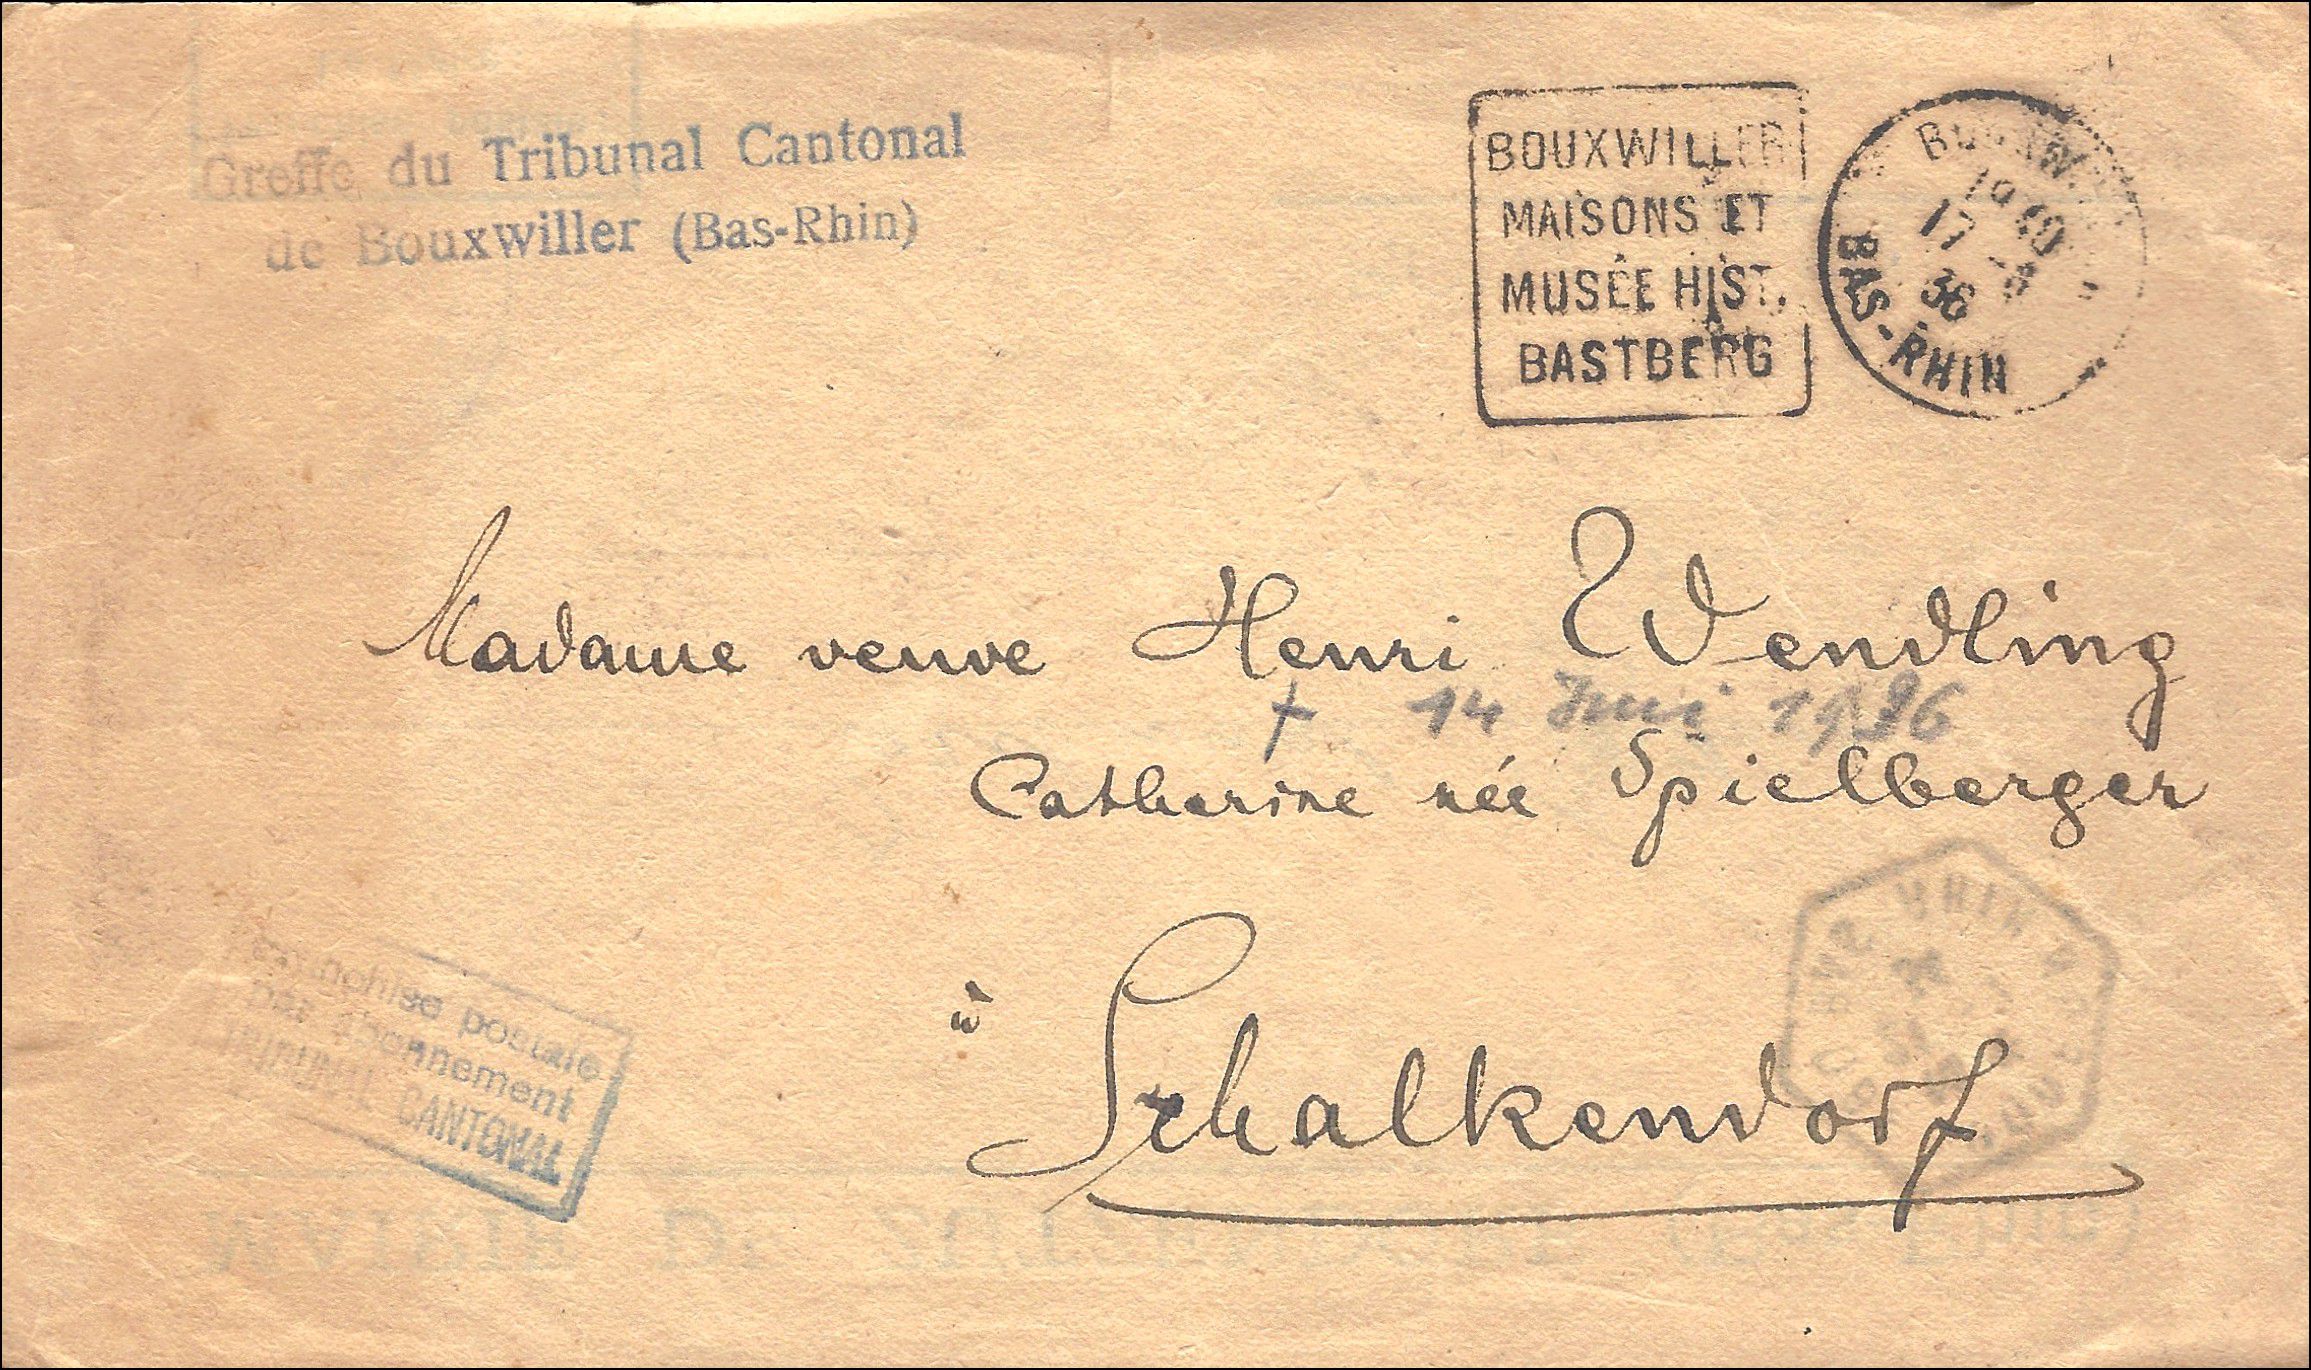 Greffe du Tribunal Cantonal
de Bouxwiller (Bas-Rhin)
BOUXWILLER
MAISONS ET
MUSÉE HIST.
BASTBERG
1940
17 -8
36
BAS-RHIN
Madame veuve Henri Wendling
+ 14 Juni 1936
Catherine née Spielberger
à
Schalkendorf
Franchise postale
par abonnement
TRIBUNAL CANTONAL
RHIN